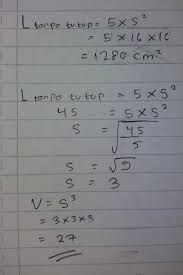 L tanpa tutup = 5 x S²
= 5 x 16 x 16
= 1280 cm²
L tanpa tutup = 5 x S²
45 = 5 x S²
S = √45/5
S = √9
S = 3
V = S³
= 3 x 3 x 3
= 27